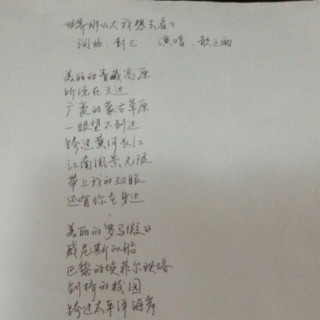 世界那么大我想去看看
词曲：彭乙 演唱：歌之雨
美丽的青藏高原
听说在天边
广袤的蒙古草原
一眼望不到边
跨过黄河长江
江南风景无限
带上我的双眼
还有你在身边
美丽的罗马假日
威尼斯的船
巴黎的埃菲尔铁塔
剑桥的校园
跨过太平洋海岸